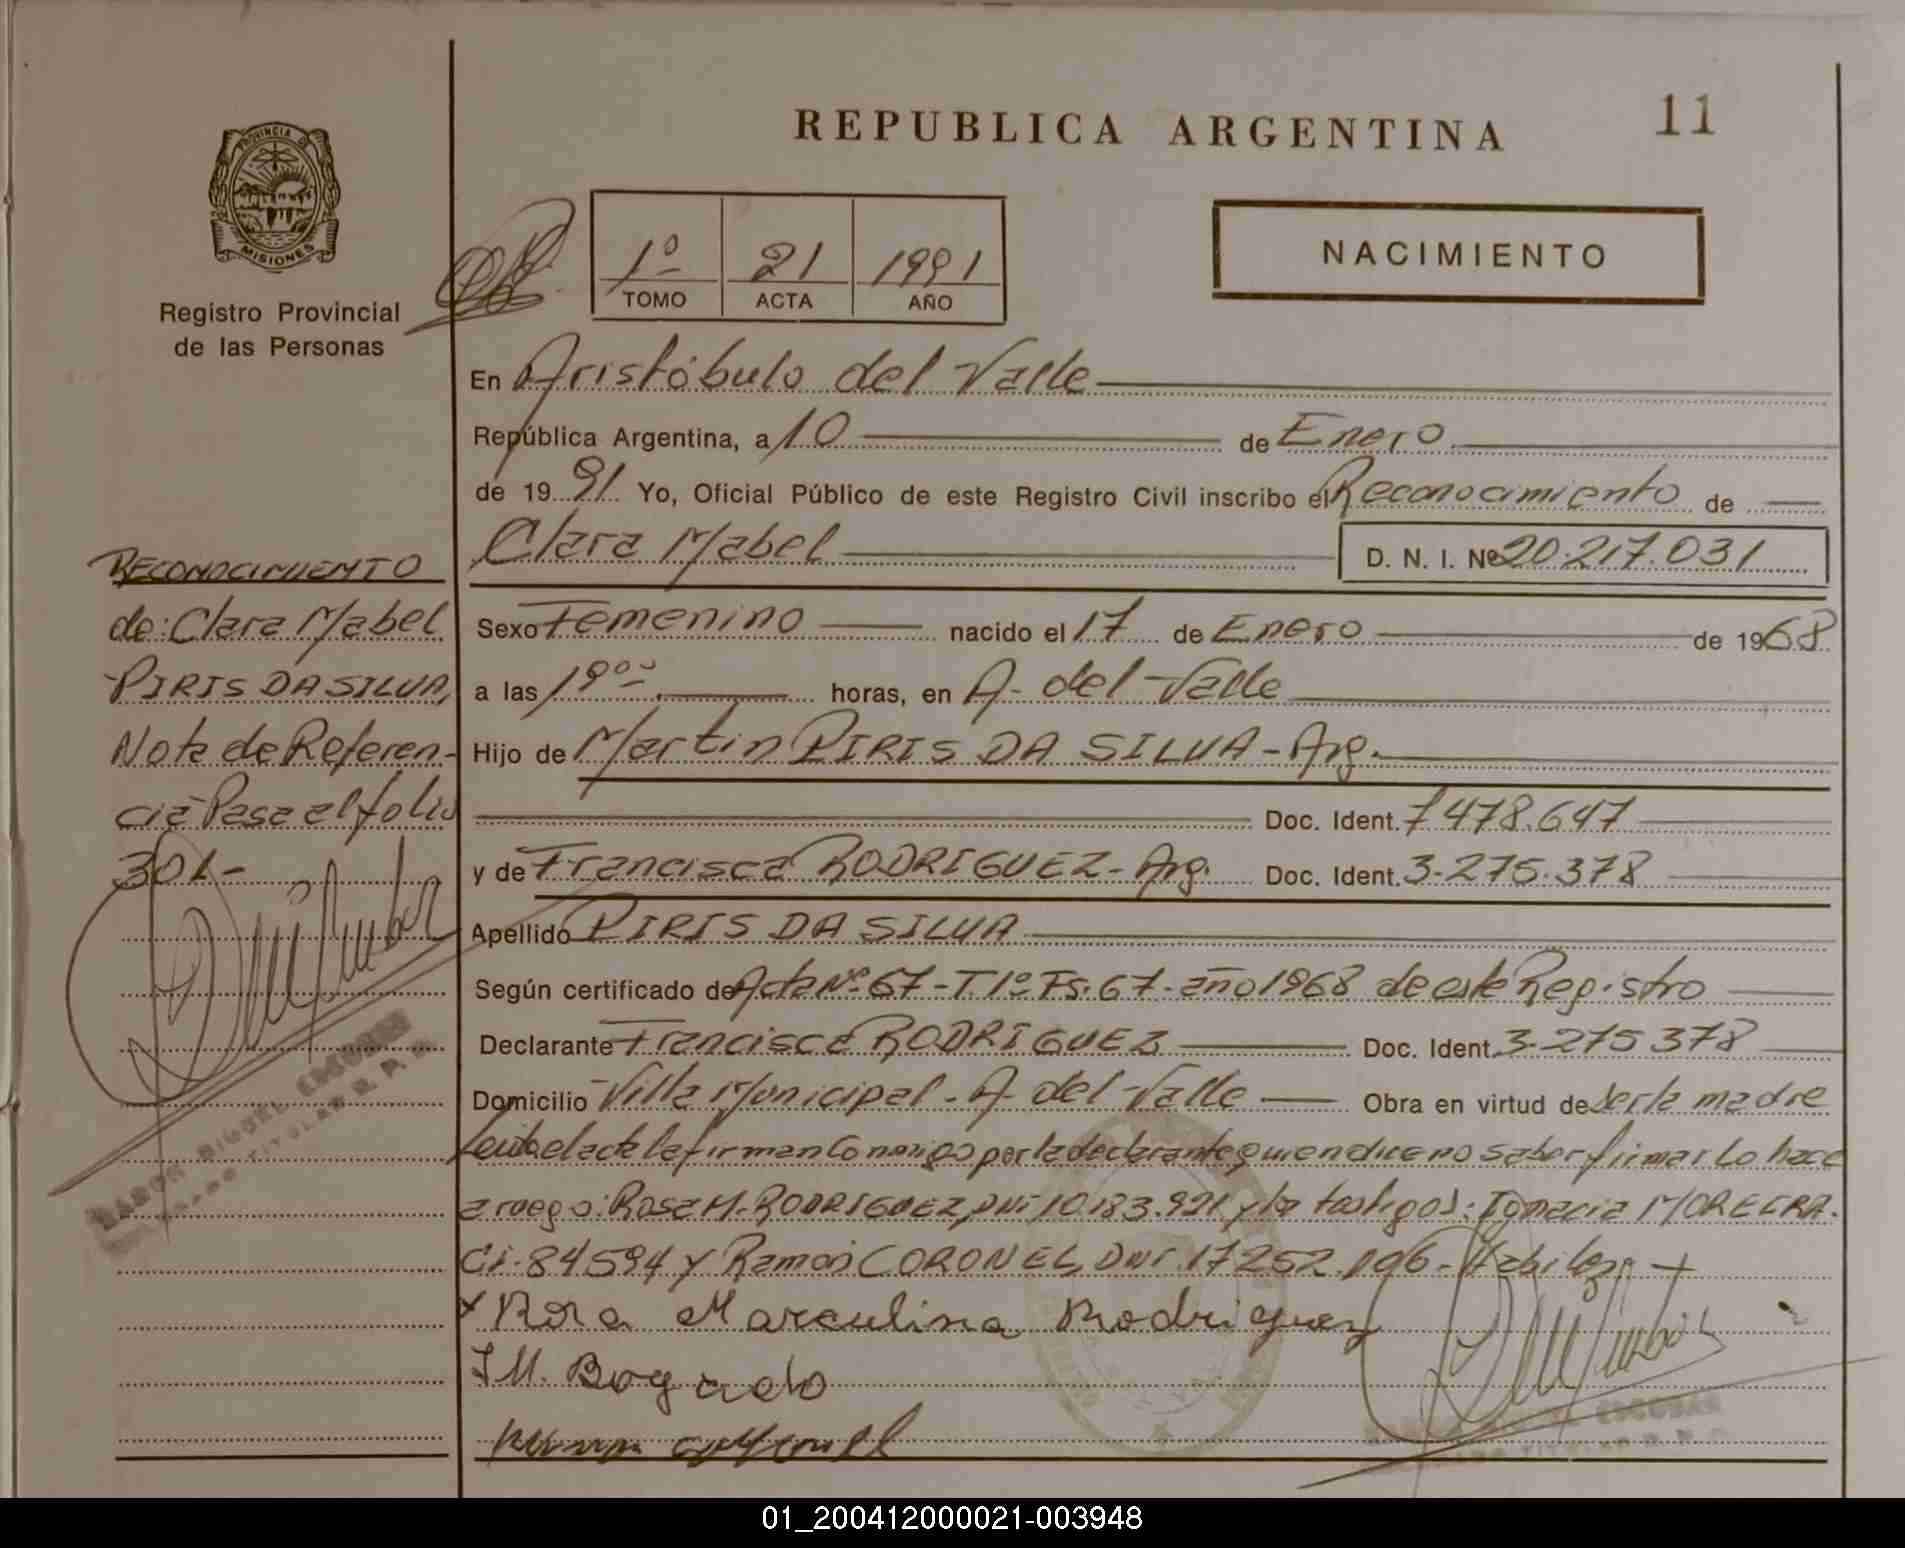 REPUBLICA ARGENTINA
11
PROVINCIA DE
MISIONES
Registro Provincial
de las Personas
1º 21 1991
TOMO ACTA AÑO
NACIMIENTO
En Aristóbulo del Valle
República Argentina, a 10 de Enero
de 1991 Yo, Oficial Público de este Registro Civil inscribo el Reconocimiento de
Clara Mabel D. N. I. Nº 20.217.031
Sexo Femenino nacido el 17 de Enero de 1968
a las 19⁰⁰ horas, en A. del Valle
Hijo de Martin PIRIS DA SILVA - Arg.
Doc. Ident. 7478.647
y de Francisca RODRIGUEZ - Arg. Doc. Ident. 3.275.378
Apellido PIRIS DA SILVA
Según certificado de Acta Nº 67 - T. 1º Fs. 67 - año 1968 de este Registro
Declarante Francisca RODRIGUEZ Doc. Ident. 3.275378
Domicilio Villa Municipal - A. del Valle Obra en virtud de ser la madre
el acta la firman conmigo por la declarante quien dice no saber firmar lo hace
a ruego: Rosa M. RODRIGUEZ, DNI 10.183.921 y los testigos: Ignacia MOREIRA.
CI. 84594 y Ramón CORONEL, DNI. 17252.196 -
x Rosa Marculina Rodriguez
I M. Bogado
RECONOCIMIENTO
de: Clara Mabel
PIRIS DA SILVA,
Nota de Referen-
cia Pasa al folio
301 -
RAMON MIGUEL ESCOBAR
TITULAR R. P.
ESCOBAR
01_200412000021-003948